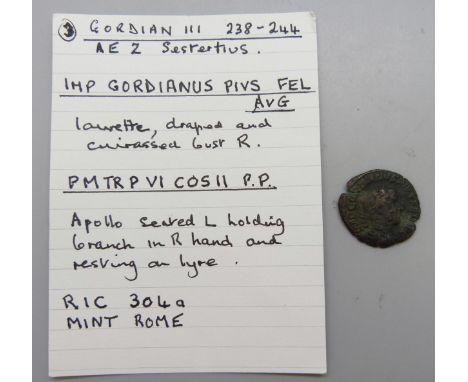 3 GORDIAN III 238-244
AE 2 Sestertius.
IMP GORDIANUS PIVS FEL
AVG
laurette, draped and
cuirassed bust R.
PMTRP VI COS II P.P.
Apollo seated L holding
branch in R hand and
resting on lyre.
RIC 304a
MINT ROME